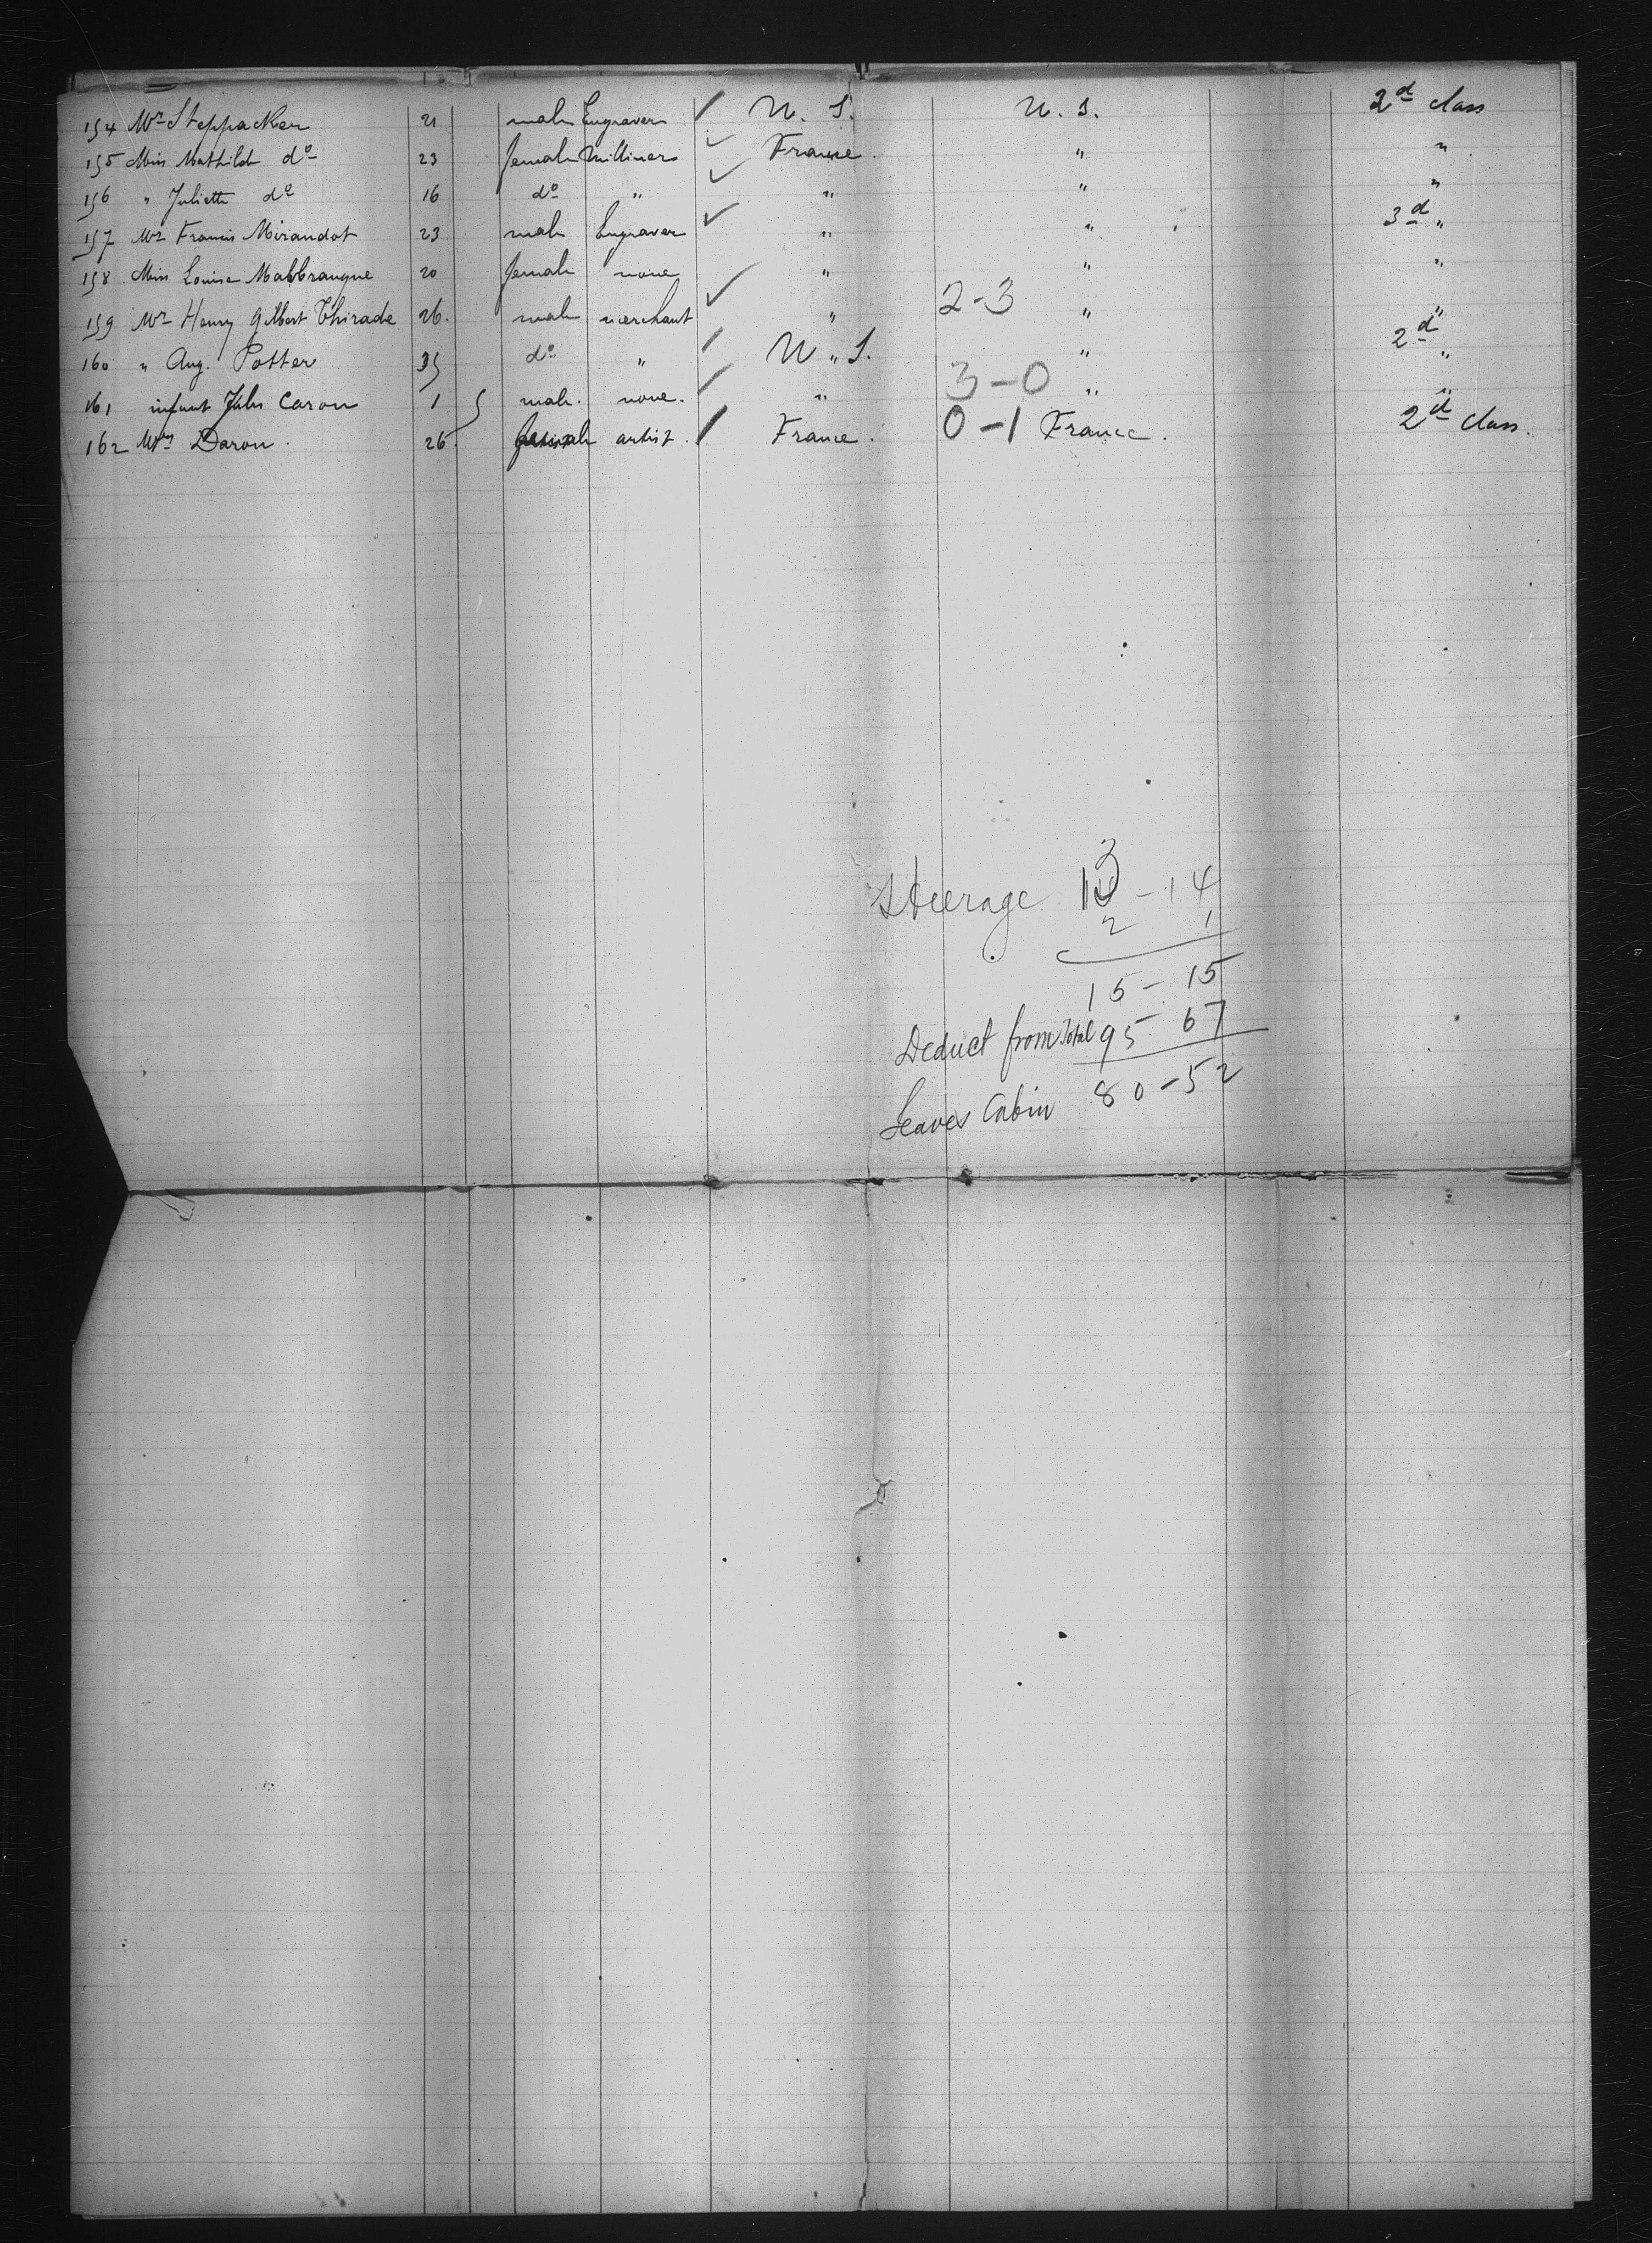 154 Mr Steppacker 21 male Engraver / U. S. U. S. 2d class
155 Miss Mathilde do 23 female Milliners ✓ France. " "
156 " Juliette do 16 do " ✓ " " "
157 Mr Francis Mirandot 23 male Engraver ✓ " " 3d "
158 Miss Louise Malbranque 20 female none " " "
159 Mr Henry Gilbert Thirade 26. male merchant ✓ " 2-3 " "
160 " Aug. Potter 35 do " / U " S. " 2d "
161 infant Jules Caron 1 male. none. / " 3-0 " "
162 Mrs Daron. 26. female artist. / France. 0-1 France. 2d class.
3
Steerage 13 - 14
2 1
15 - 15
Deduct from Total 95 67
Leaves Cabin 80 - 52